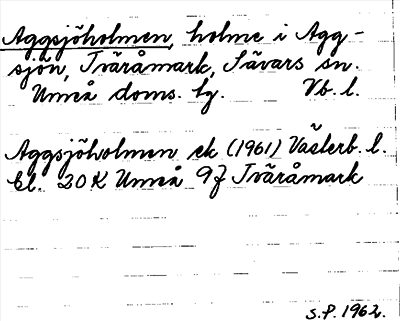 Aggsjöholmen, holme i Agg-
sjön, Tväråmark, Sävars sn.
Umeå doms. lg. Vb. l.
Aggsjöholmen ek (1961) Västerb. l.
Bl. 20 K Umeå 9f Tväråmark
S.P. 1962.